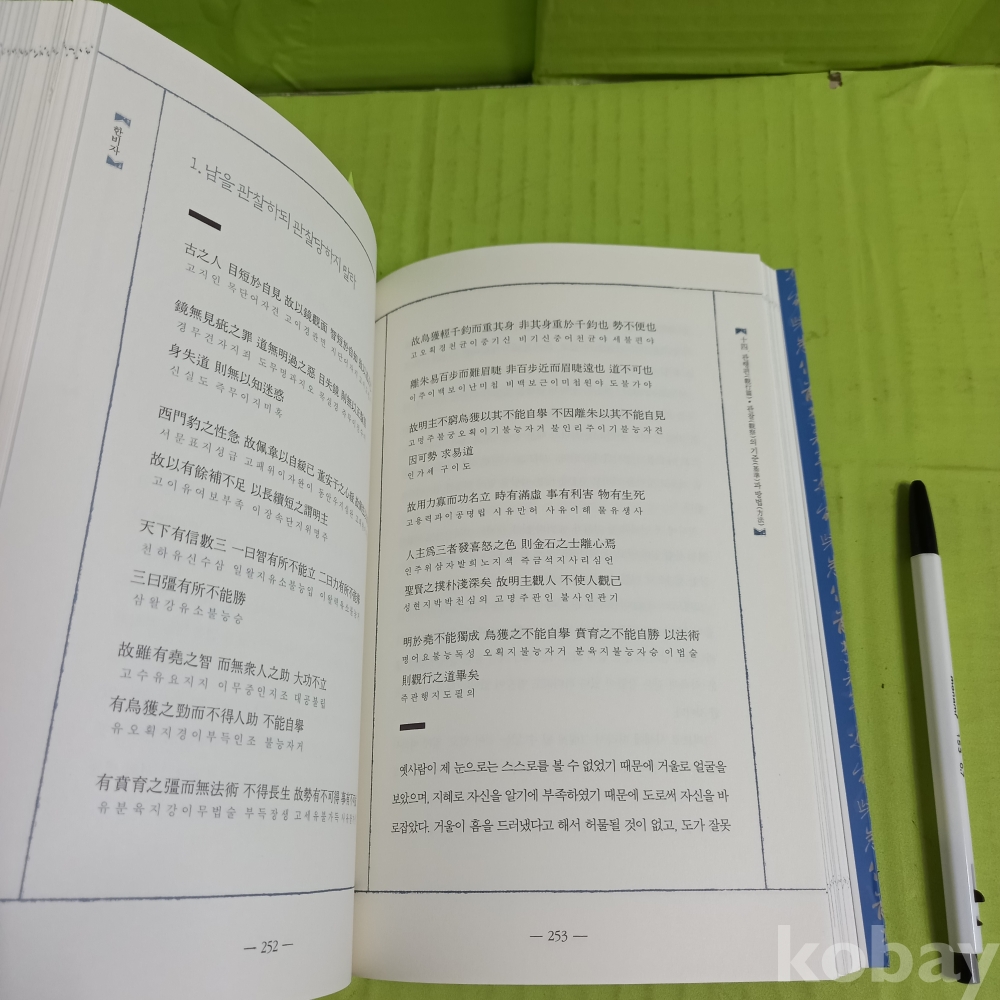 한비자
1. 남을 관찰하되 관찰당하지 말라
古之人 目短於自見 故以鏡觀面 智短於自
고지인 목단어자견 고이경관면 지단어자
鏡無見疵之罪 道無明過之惡 目失鏡
경무견자지죄 도무명과지오 목실경
身失道 則無以知迷惑
신실도 즉무이지미혹
西門豹之性急 故佩韋以自緩己 董安于之心緩
서문표지성급 고패위이자원이 동안우지심유
故以有餘補不足 以長續短之謂明主
고이유여보부족 이장속단지위명주
天下有信數三 一曰智有所不能立 二曰力有所不能擧
천하유신수삼 일왈지유소불능입 이왈력유소불능거
三曰彊有所不能勝
삼왈강유소불능승
故雖有堯之智 而無衆人之助 大功不立
고수유요지지 이무중인지조 대공불립
有烏獲之勁而不得人助 不能自擧
유오획지경이부득인조 불능자거
有賁育之彊而無法術 不得長生 故勢有不可得
유분육지강이무법술 부득장생 고세유불가득
— 252 —
故烏獲輕千鈞而重其身 非其身重於千鈞也 勢不便也
고오획경천균이중기신 비기신중어천균야 세불편야
離朱易百步而難眉睫 非百步近而眉睫遠也 道不可也
이주이백보이난미첩 비백보근이미첩원야 도불가야
故明主不窮烏獲以其不能自擧 不因離朱以其不能自見
고명주불궁오획이기불능자거 불인리주이기불능자견
因可勢 求易道
인가세 구이도
故用力寡而功名立 時有滿虛 事有利害 物有生死
고용력과이공명립 시유만허 사유이해 물유생사
人主爲三者發喜怒之色 則金石之士離心焉
인주위삼자발희노지색 즉금석지사리심언
聖賢之撲朴淺深矣 故明主觀人 不使人觀己
성현지박박천심의 고명주관인 불사인관기
明於堯不能獨成 烏獲之不能自擧 賁育之不能自勝 以法術
명어요불능독성 오획지불능자거 분육지불능자승 이법술
則觀行之道畢矣
즉관행지도필의
옛사람이 제 눈으로는 스스로를 볼 수 없었기 때문에 거울로 얼굴을
보았으며, 지혜로 자신을 알기에 부족하였기 때문에 도로써 자신을 바
로잡았다. 거울이 흠을 드러냈다고 해서 허물될 것이 없고, 도가 잘못
— 253 —
十四. 관행편(觀行篇)· 관찰(觀察)의 기준(基準)과 방법(方法)
kobay